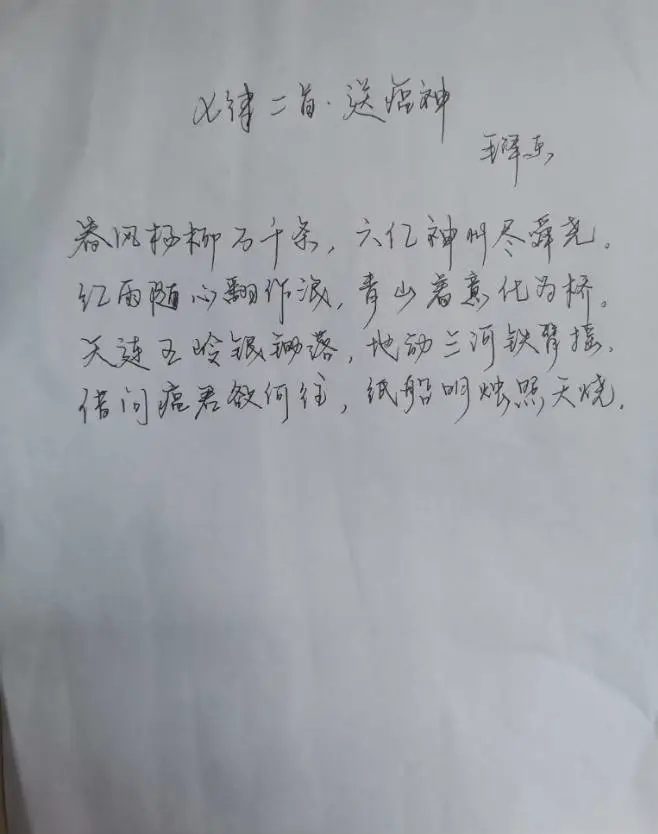 七律二首·送瘟神
春风杨柳万千条，六亿神州尽舜尧。
红雨随心翻作浪，青山着意化为桥。
天连五岭银锄落，地动三河铁臂摇。
借问瘟君欲何往，纸船明烛照天烧。